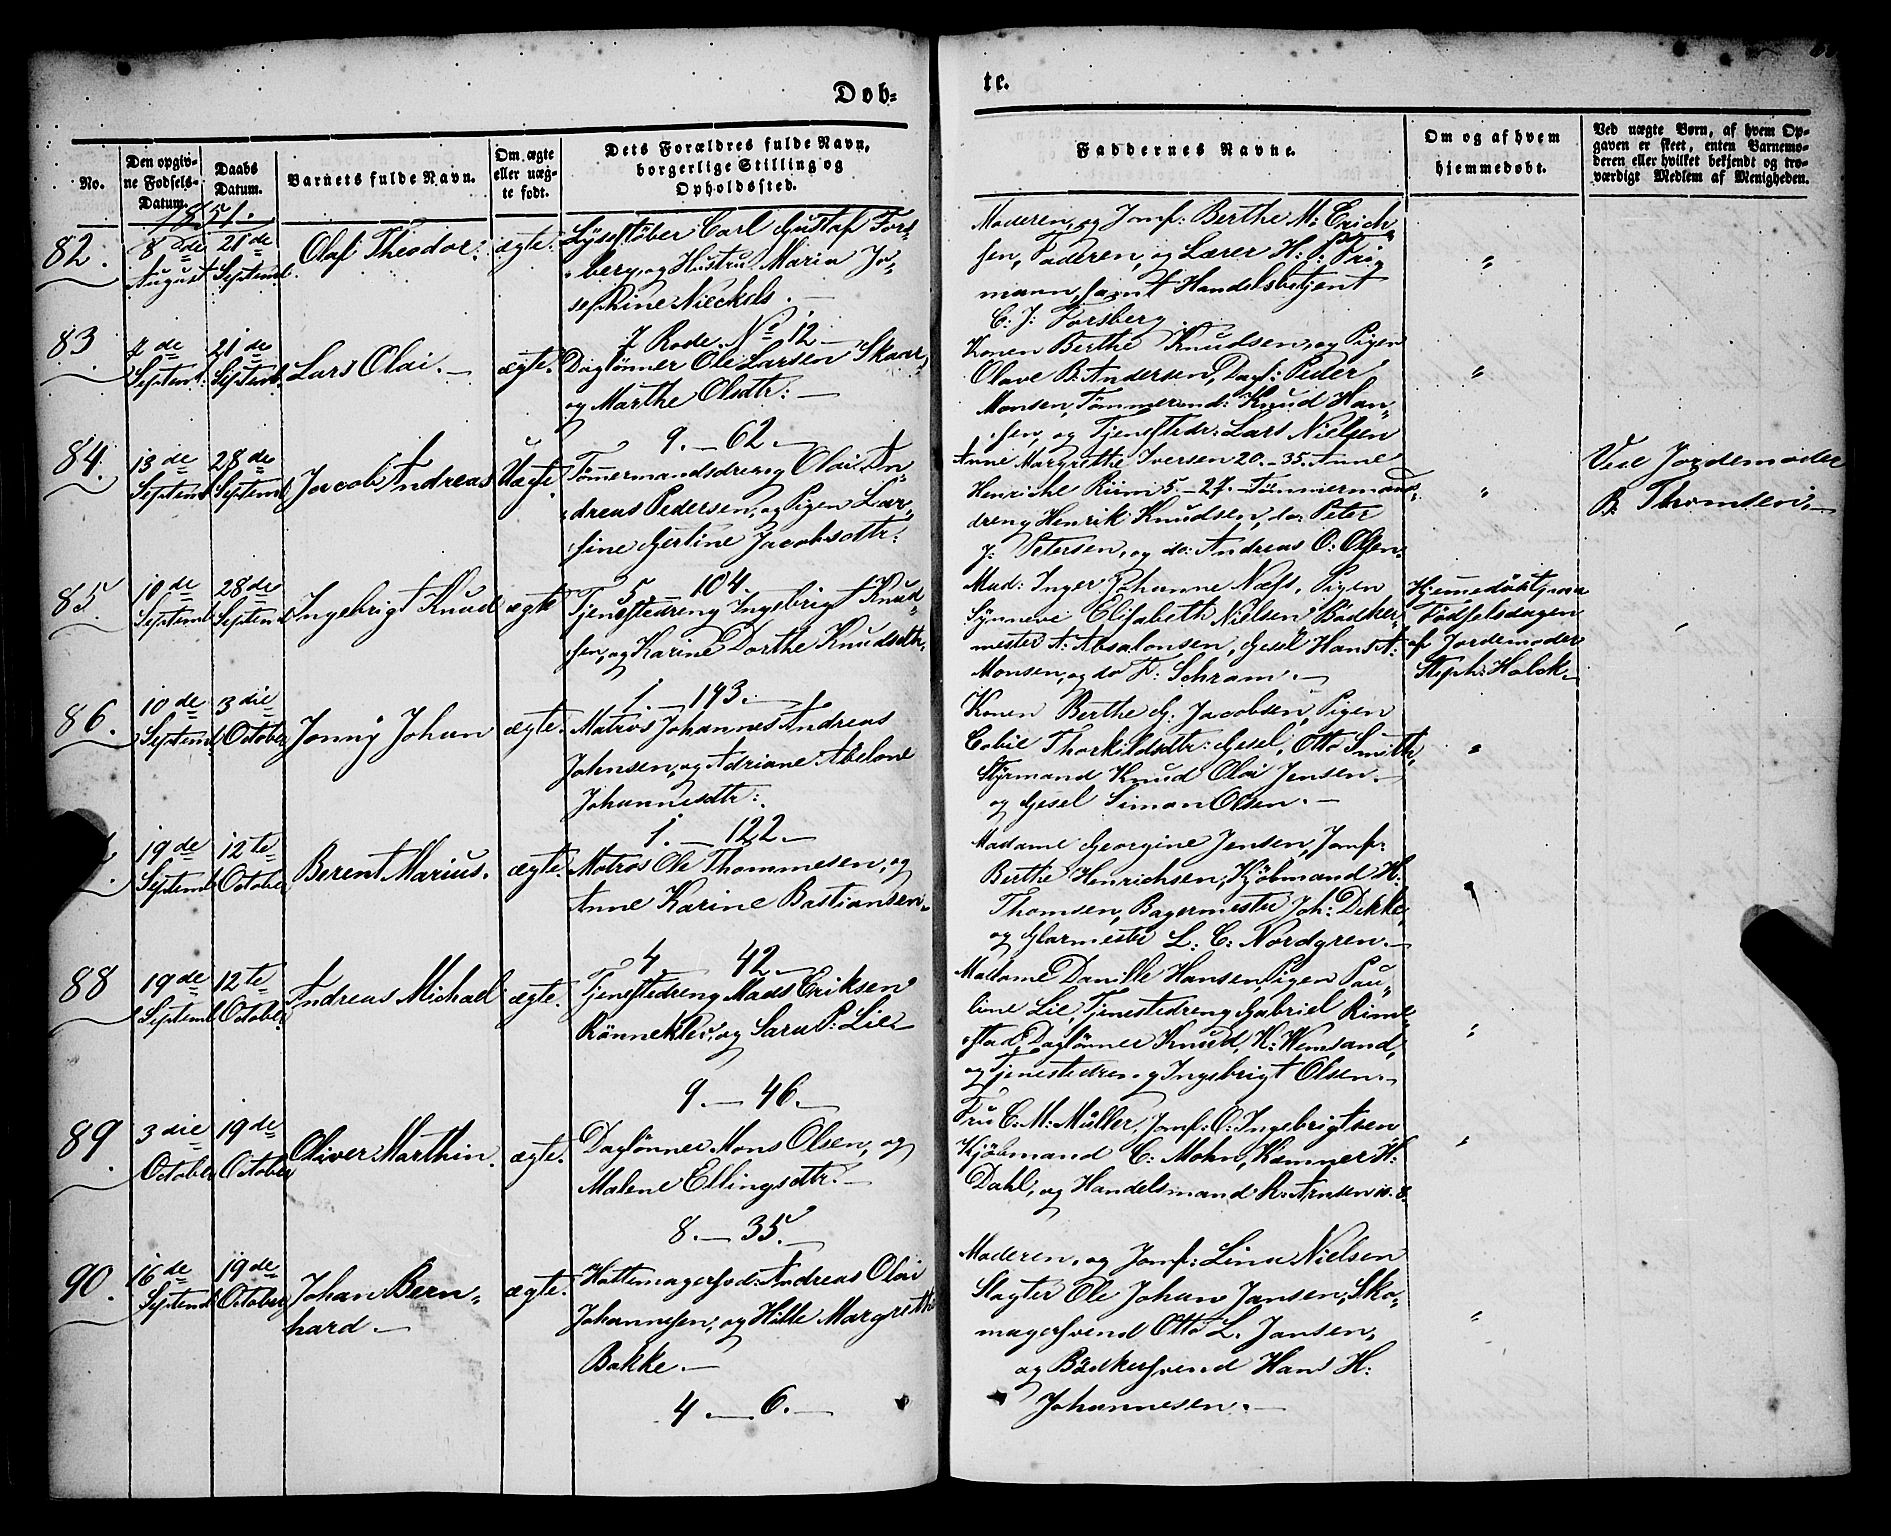 Døb-
te.
No.
Den opgiv-
ne Fødsels-
Datum.
Daabs
Datum.
Barnets fulde Navn.
Om ægte
eller uæg-
te født.
Dets Forældres fulde Navn,
borgerlige Stilling og
Opholdssted.
Faddernes Navne.
Om og af hvem
hjemmedøbt.
Ved uægte Børn, af hvem Op-
gaven er skeet, enten Barnemo-
deren eller hvilket bekjendt og tro-
værdigt Medlem af Menigheden.
1851.
82.
8de
August
21de
Septemb.
Olaf Theodor.
ægte.
Lysestøber Carl Gustaf Fors-
berg, og Hustru Maria Jo-
sephine Nieckels.
7 Rode. No 12
Moderen, og Jomf: Berthe M: Erich-
sen, Faderen, og Lærer H: P:
mann, samt Handelsbetjent
C. J. Forsberg
"
83
7de
Septemb:
21de
Septemb.
Lars Olai.
ægte.
Daglønner Ole Larsen Skaar,
og Marthe Olsdtr:
9. - 62.
Konen Berthe Knudsen, og Pigen
Olave B. Andersen, Dagl: Peder
Monsen, Tømmermd: Knud Han-
sen, og Tjenestedr: Lars Nielsen
"
84.
13de
Septemb
28de
Septemb
Jacob Andreas
Uægte.
Tømmermandsdreng Olai An-
dreas Pedersen, og Pigen Lar-
sine Gertine Jacobsdtr.
5 - 104.
Anne Margrethe Iversen 20. - 35. Anne
Henrikke Riim 5. - 27. - Tømmermands-
dreng Henrik Knudsen, do: Peter
J. Petersen, og do: Andreas O: Olsen.
"
Ved Jordemoder
B. Thomsen.
85.
10de
Septemb
28de
Septemb
Ingebrigt Knud
ægte
Tjenestedreng Ingebrigt Knud-
sen, og Karine Dorthe Knudsdtr.
1. - 193.
Mad: Inger Johanne Næss, Pigen
Synneve Elisabeth Nielsen Bødker-
mester A: Absalonsen, Gesel Hans A:
Monsen, og do F: Schram.
Hjemmedøbt paa
Fødselsdagen
af Jordemoder
Steph: Holck.
86.
10de
Septemb
3die
October
Jonny Johan
ægte.
Matros Johannes Andreas
Johnsen, og Adriane Abelone
Johannesdtr:
1. - 122.
Konen Berthe G. Jacobsen, Pigen
Thorkildsdtr: Gesel, Otto Smith,
Styrmand Knud Olai Jensen.
og Gesel Simon Olsen.
"
19de
Septemb
12te
October
Berent Marius.
ægte.
Matros Ole Thommesen, og
Anne Karine Bastiansen.
4 42
Madame Georgine Jensen, Jomf:
Berthe Henrichsen, Kjøbmand H:
Thomsen, Bagermester Joh: Dekke,
og Glarmester L. C. Nordgren.
88
19de
Septemb
12te
October
Andreas Michael
ægte.
Tjenestedreng Mads Eriksen
Rønneklev, og Sara P: Lie
9. - 46.
Madame Danille Hansen, Pigen Pau-
line Lie, Tjenestedreng Gabriel Rime-
stad, Daglønner Knud, K: Wemsand,
og Tjenestedreng Ingebrigt Olsen.
"
89
3die
October
19de
October
Oliver Marthin.
ægte.
Daglønner Mons Olsen, og
Malene Ellingsdtr.
8. - 35.
Fru C. M. Müller, Jomf: O: Ingebrigtsen
Kjøbmand C: Mohn, Kæmner H:
Dahl, og Handelsmand R. Arnsen
"
90.
16de
Septemb
19de
October
Johan Bern-
hard
ægte.
Hattemagersvd: Andreas Olai
Johannesen, og Hille Margrethe
Bakke.
4. - 6.
Moderen, og Jomf: Lina Nielsen
Slagter Ole Johan Jansen, Sko-
magersvend Otto L. Jansen,
og Bødkersvend Hans H:
Johannesen.
"